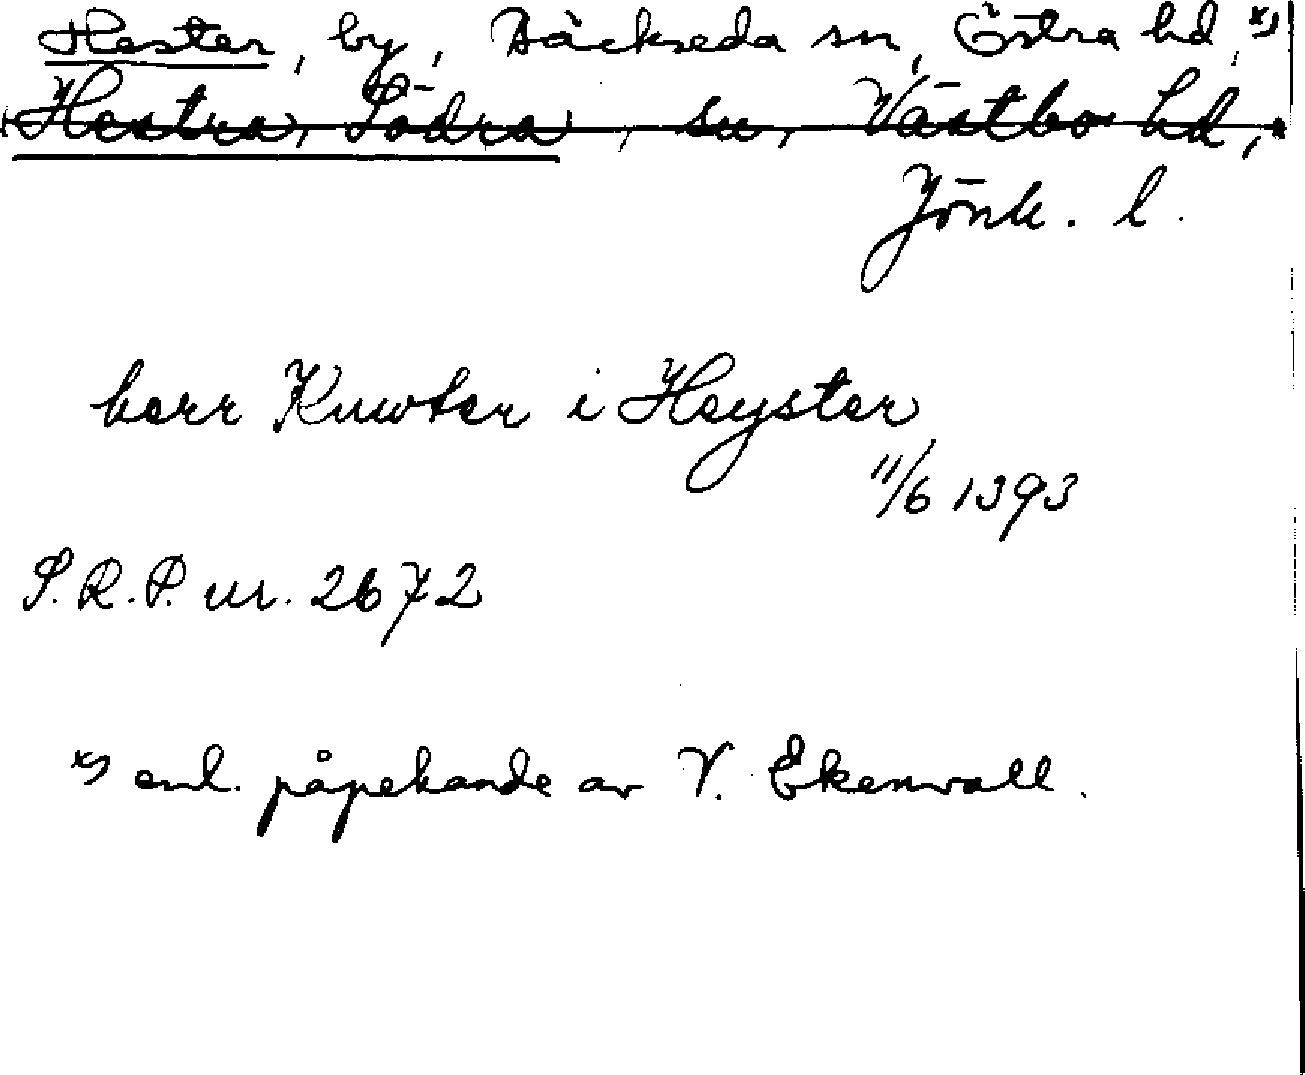 Hester, by, Bäckseda sn, Östra hd, x)
Hestra, Södra, sn, Västbo hd,
Jönk. l.
herr Knwter i Heyster
11/6 1393
S.R.P. nr. 2672
x) enl. påpekande av V. Ekenvall.